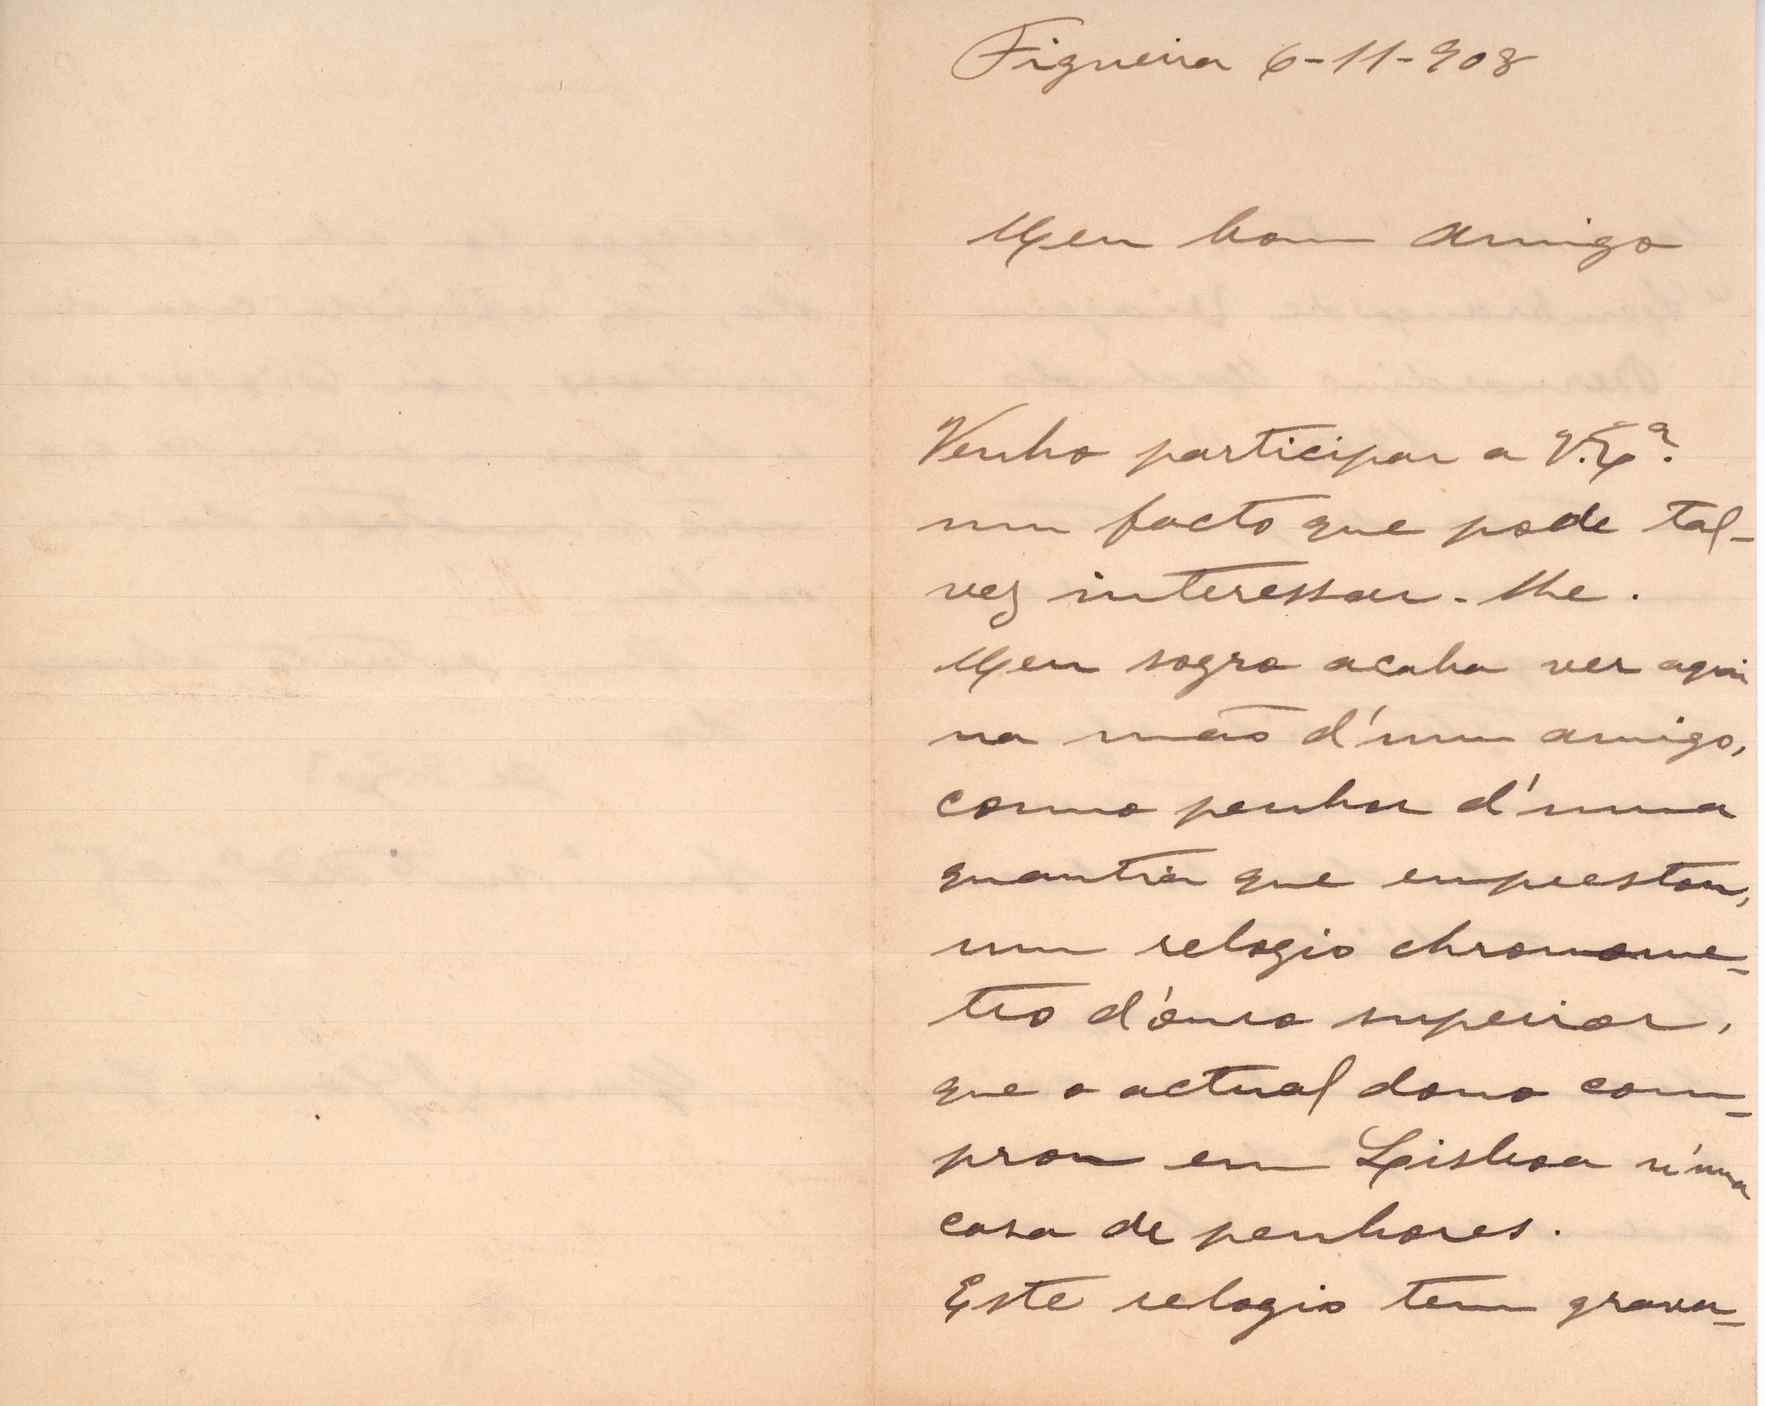 Figueira 6-11-908
Meu bom amigo
Venho participar a V. Exª.
um facto que pode tal-
vez interessar-lhe.
Meu sogro acaba ver aqui
na mão d'um amigo,
como penhor d'uma
quantia que emprestou,
um relogio chronome-
tro d'ouro superior,
que o actual dono com-
prou em Lisboa n'uma
casa de penhores.
Este relogio tem grava-